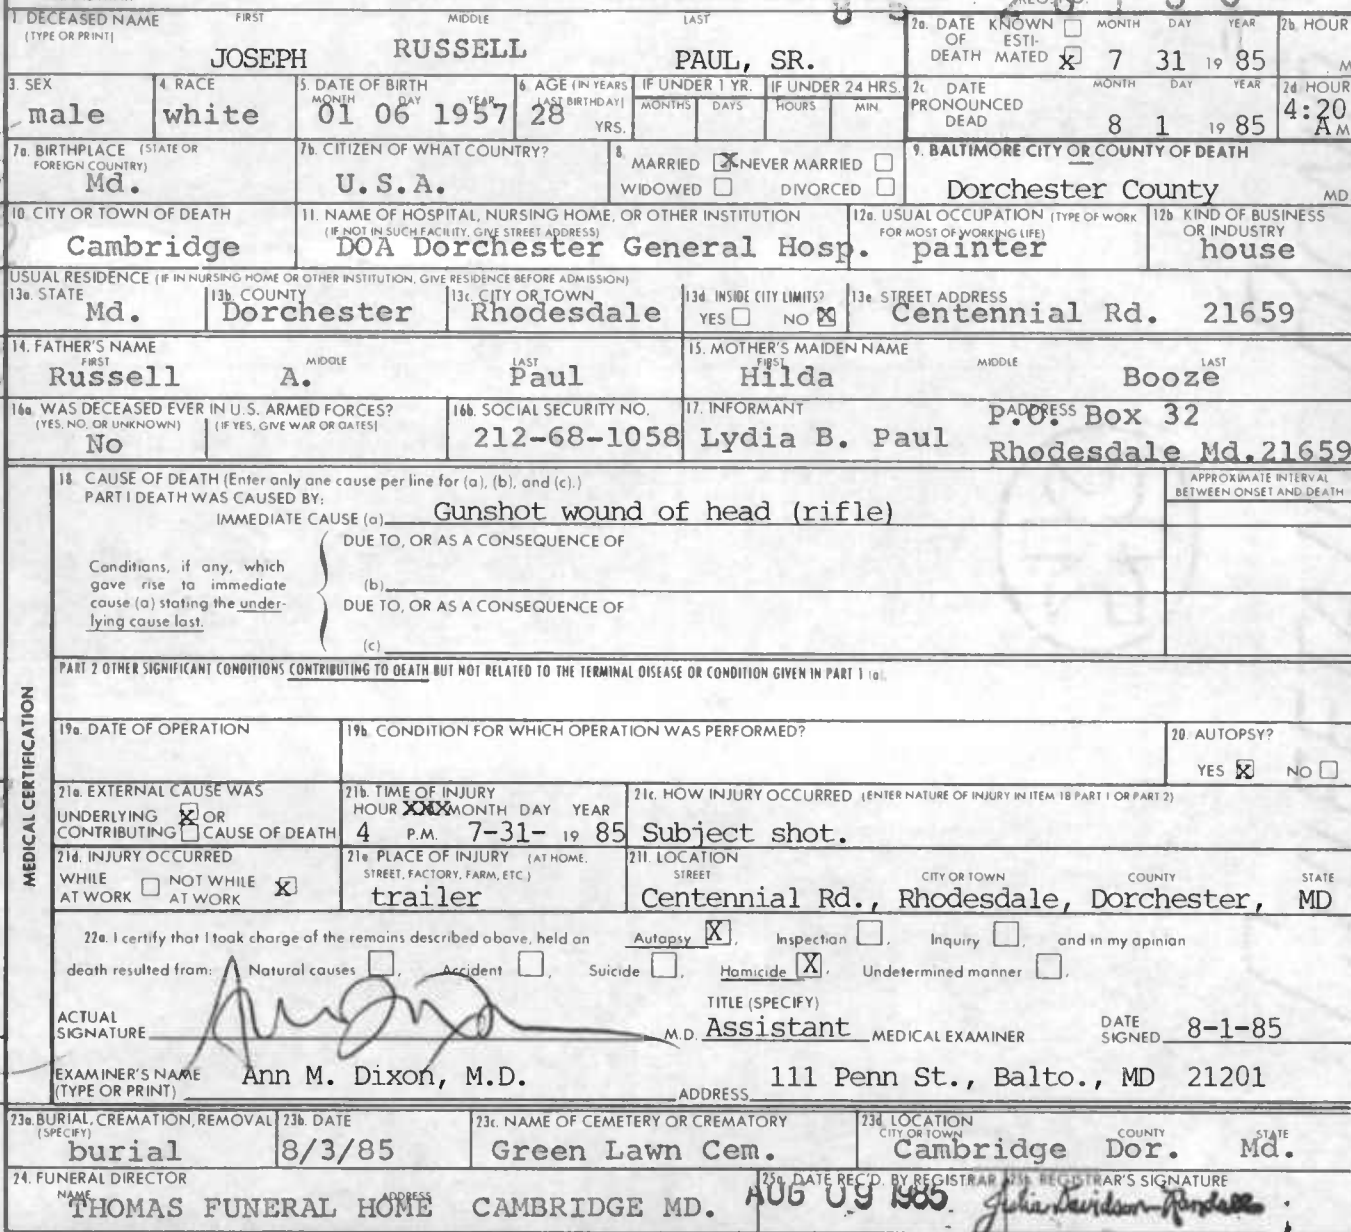 1. DECEASED NAME FIRST MIDDLE LAST
(TYPE OR PRINT)
JOSEPH RUSSELL PAUL, SR.
2a. DATE KNOWN ☐ MONTH DAY YEAR
OF ESTI-
DEATH MATED ☒ 7 31 19 85
2b. HOUR
M
3. SEX
male
4. RACE
white
5. DATE OF BIRTH
MONTH DAY YEAR
01 06 1957
6. AGE (IN YEARS
LAST BIRTHDAY)
28 YRS.
IF UNDER 1 YR.
MONTHS DAYS
IF UNDER 24 HRS.
HOURS MIN.
2c. DATE MONTH DAY YEAR
PRONOUNCED
DEAD 8 1 19 85
2d. HOUR
4:20
A M
7a. BIRTHPLACE (STATE OR
FOREIGN COUNTRY)
Md.
7b. CITIZEN OF WHAT COUNTRY?
U.S.A.
8. MARRIED ☒ NEVER MARRIED ☐
WIDOWED ☐ DIVORCED ☐
9. BALTIMORE CITY OR COUNTY OF DEATH
Dorchester County MD
10. CITY OR TOWN OF DEATH
Cambridge
11. NAME OF HOSPITAL, NURSING HOME, OR OTHER INSTITUTION
(IF NOT IN SUCH FACILITY, GIVE STREET ADDRESS)
DOA Dorchester General Hosp.
12a. USUAL OCCUPATION (TYPE OF WORK
FOR MOST OF WORKING LIFE)
painter
12b. KIND OF BUSINESS
OR INDUSTRY
house
USUAL RESIDENCE (IF IN NURSING HOME OR OTHER INSTITUTION, GIVE RESIDENCE BEFORE ADMISSION)
13a. STATE
Md.
13b. COUNTY
Dorchester
13c. CITY OR TOWN
Rhodesdale
13d. INSIDE CITY LIMITS?
YES ☐ NO ☒
13e. STREET ADDRESS
Centennial Rd. 21659
14. FATHER'S NAME
FIRST MIDDLE LAST
Russell A. Paul
15. MOTHER'S MAIDEN NAME
FIRST MIDDLE LAST
Hilda Booze
16a. WAS DECEASED EVER IN U.S. ARMED FORCES?
(YES, NO, OR UNKNOWN) (IF YES, GIVE WAR OR DATES)
No
16b. SOCIAL SECURITY NO.
212-68-1058
17. INFORMANT ADDRESS
Lydia B. Paul P.O. Box 32
Rhodesdale Md.21659
MEDICAL CERTIFICATION
18. CAUSE OF DEATH (Enter only one cause per line for (a), (b), and (c).)
PART I DEATH WAS CAUSED BY:
IMMEDIATE CAUSE (a) Gunshot wound of head (rifle)
APPROXIMATE INTERVAL
BETWEEN ONSET AND DEATH
DUE TO, OR AS A CONSEQUENCE OF
Conditions, if any, which
gave rise to immediate
cause (a) stating the under-
lying cause last.
(b)
DUE TO, OR AS A CONSEQUENCE OF
(c)
PART 2 OTHER SIGNIFICANT CONDITIONS CONTRIBUTING TO DEATH BUT NOT RELATED TO THE TERMINAL DISEASE OR CONDITION GIVEN IN PART 1 (a).
19a. DATE OF OPERATION
19b. CONDITION FOR WHICH OPERATION WAS PERFORMED?
20. AUTOPSY?
YES ☒ NO ☐
21a. EXTERNAL CAUSE WAS
UNDERLYING ☒ OR
CONTRIBUTING ☐ CAUSE OF DEATH
21b. TIME OF INJURY
HOUR XXX MONTH DAY YEAR
4 P.M. 7-31- 19 85
21c. HOW INJURY OCCURRED (ENTER NATURE OF INJURY IN ITEM 18 PART 1 OR PART 2)
Subject shot.
21d. INJURY OCCURRED
WHILE ☐ NOT WHILE ☒
AT WORK AT WORK
21e. PLACE OF INJURY (AT HOME,
STREET, FACTORY, FARM, ETC.)
trailer
21f. LOCATION
STREET CITY OR TOWN COUNTY STATE
Centennial Rd., Rhodesdale, Dorchester, MD
22a. I certify that I took charge of the remains described above, held an Autopsy ☒, Inspection ☐, Inquiry ☐, and in my opinion
death resulted from: Natural causes ☐, Accident ☐, Suicide ☐, Homicide ☒, Undetermined manner ☐.
ACTUAL
SIGNATURE M.D.
TITLE (SPECIFY)
Assistant MEDICAL EXAMINER
DATE
SIGNED 8-1-85
EXAMINER'S NAME
(TYPE OR PRINT) Ann M. Dixon, M.D.
ADDRESS 111 Penn St., Balto., MD 21201
23a. BURIAL, CREMATION, REMOVAL
(SPECIFY)
burial
23b. DATE
8/3/85
23c. NAME OF CEMETERY OR CREMATORY
Green Lawn Cem.
23d. LOCATION
CITY OR TOWN COUNTY STATE
Cambridge Dor. Md.
24. FUNERAL DIRECTOR
NAME ADDRESS
THOMAS FUNERAL HOME CAMBRIDGE MD.
25a. DATE REC'D. BY REGISTRAR
AUG 09 1985
25b. REGISTRAR'S SIGNATURE
Julia Davidson-Randall